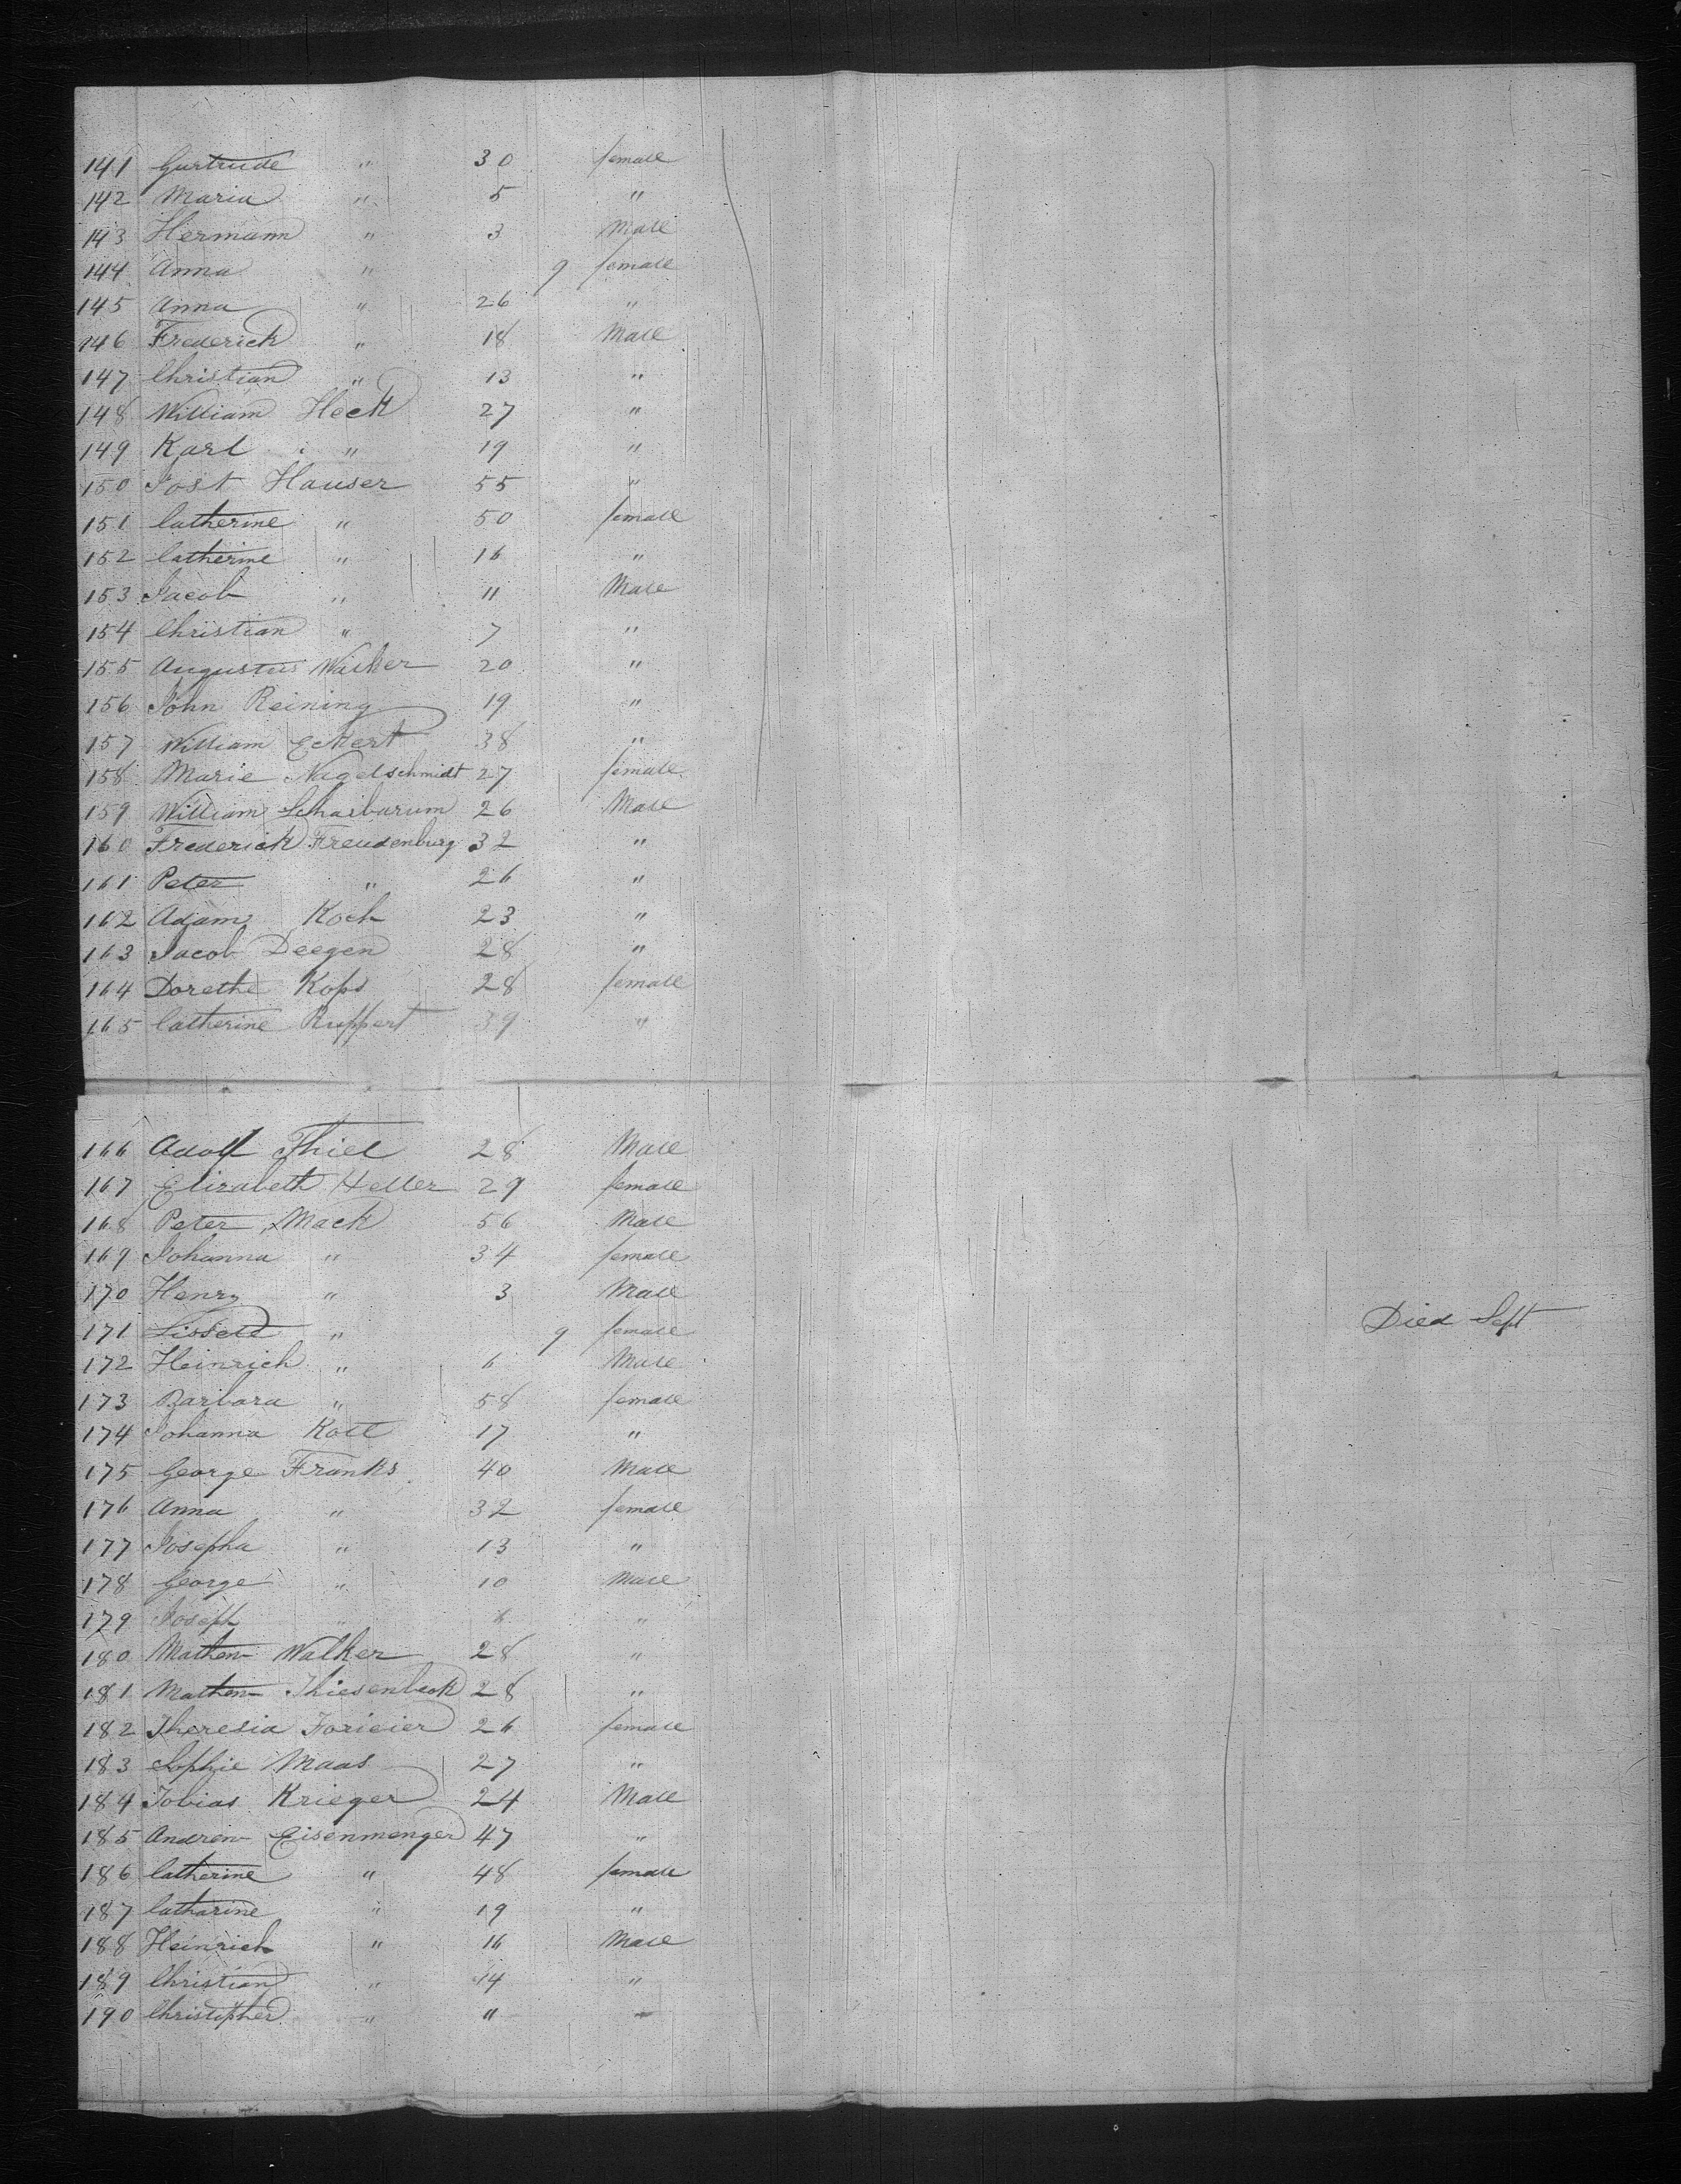 141 Gurtrude " 30 female
142 Maria " 5 "
143 Hermann " 3 Male
144 Anna " 9 female
145 Anna " 26 "
146 Frederick " 18 Male
147 Christian " 13 "
148 William Heck 27 "
149 Karl " 19 "
150 Jost Hauser 55 "
151 Catherine " 50 female
152 Catherine " 16 "
153 Jacob " 11 Male
154 Christian " 7 "
155 Augustus 20 "
156 John Reining 19 "
157 William Eckert 38 "
158 Marie Nagelschmidt 27 female
159 William 26 Male
160 Frederick Freudenburg 32 "
161 Peter " 26 "
162 Adam Koch 23 "
163 Jacob Deegen 28 "
164 Dorethe Kops 28 female
165 Catherine Ruppert 39 "
166 Adolf Thiel 28 Male
167 Elizabeth Heller 29 female
168 Peter Mack 56 Male
169 Johanna " 34 female
170 Henry " 3 Male
171 " 9 female Died Sept
172 Heinrich " 6 Male
173 Barbara " 58 female
174 Johanna 17 "
175 George Franks 40 Male
176 Anna " 32 female
177 Josepha " 13 "
178 George " 10 Male
179 Joseph " 6 "
180 Mathew Walker 28 "
181 Mathew Thiesenbeck 28 "
182 Theresia 26 female
183 Sophie Maas 27 "
184 Tobias Krieger 24 Male
185 Andrew Eisenmenger 47 "
186 Catherine " 48 female
187 Catharine " 19 "
188 Heinrich " 16 Male
189 Christian " 14 "
190 Christopher " 11 "